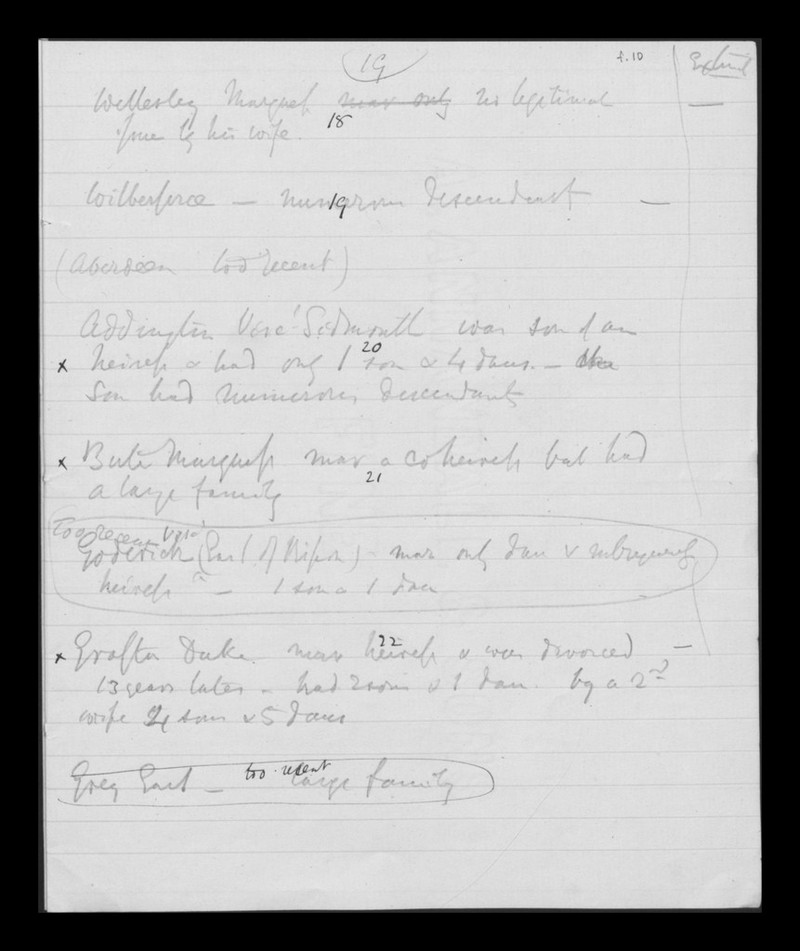 19
f.10
Extinct
Wellesley Marquess mar only no legitimate —
18
issue by his wife.
Wilberforce — numerous descendants —
19
(Aberdeen too recent)
Addington Visc! Sidmouth was son of an
20
x heiress & had only 1 son & 4 daus. — the
son had numerous descendants
x Bute Marquess mar a coheiress but had
21
a large family
too recent Visc!
Goderich (Earl of Ripon) — mar only dau & subsequently
heiress — 1 son & 1 dau
22
x Grafton Duke mar heiress & was divorced —
13 years later — had 2 sons & 1 dau. by a 2nd
wife 4 sons & 5 daus
too recent
Grey Earl — large family